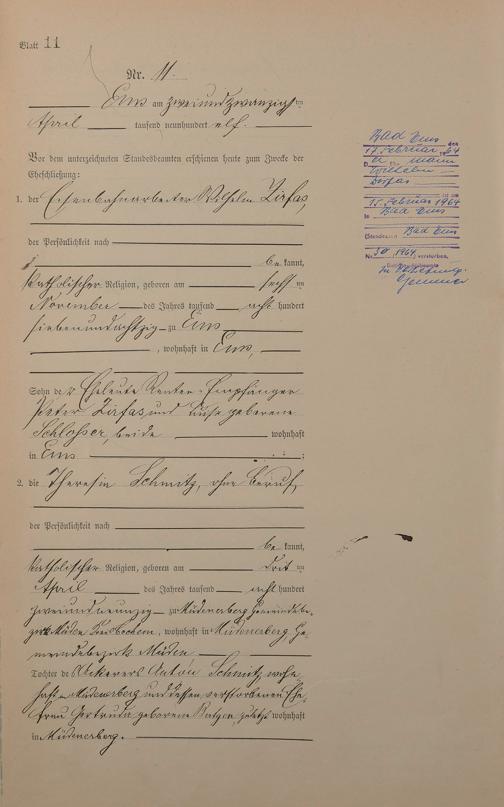 Blatt 11
Nr. 11.
Ems am zweiundzwanzigsten
April tausend neunhundert elf.
Vor dem unterzeichneten Standesbeamten erschienen heute zum Zwecke der
Eheschließung:
1. der Eisenbahnarbeiter Wilhelm Zirfas,
der Persönlichkeit nach
be kannt,
katholischer Religion, geboren am sechsten
November des Jahres tausend acht hundert
siebenundachtzig zu Ems
, wohnhaft in Ems,
Sohn der Eheleute Renten-Empfänger
Peter Zirfas und geborene
Schlosser, beide wohnhaft
in Ems ;
2. die Theresia Schmitz, ohne Beruf,
der Persönlichkeit nach
be kannt,
katholischer Religion, geboren am dritten
April des Jahres tausend acht hundert
zweiundneunzig zu Müdenerberg Gemeindebe-
zirk Müden, wohnhaft in Müdenerberg, Ge-
meindebezirk Müden
Tochter des Ackerers Anton Schmitz, wohn-
haft in Müdenerberg und dessen verstorbenen Ehe-
frau Gertrud geborene, zuletzt wohnhaft
in Müdenerberg.
Bad Ems den
17. Februar 64
D er mann
Wilhelm
Zirfas
ist am
15. Februar 1964
in Bad Ems
(Standesamt Bad Ems
Nr. 1964) verstorben.
In Vertretung: